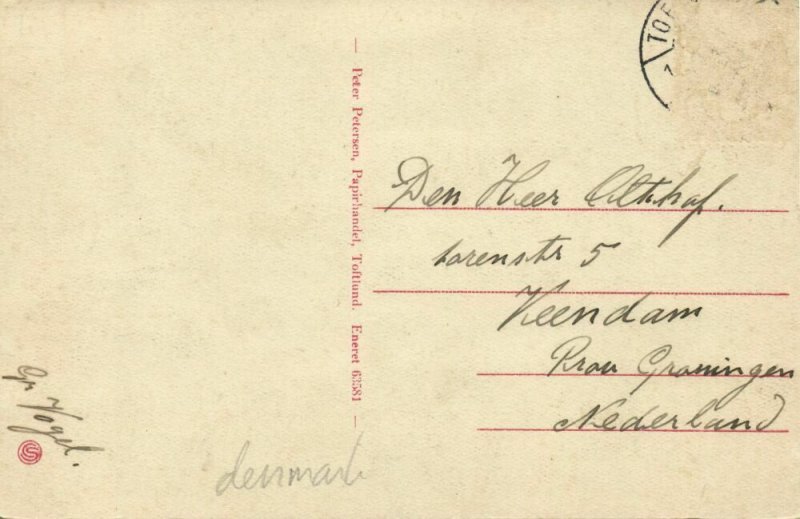 TOF
— Peter Petersen, Papirhandel, Toftlund. Eneret 62581 —
Den Heer Olthof.
torenstr 5
Veendam
Prov Groningen
Nederland
Gr Vogel.
denmark